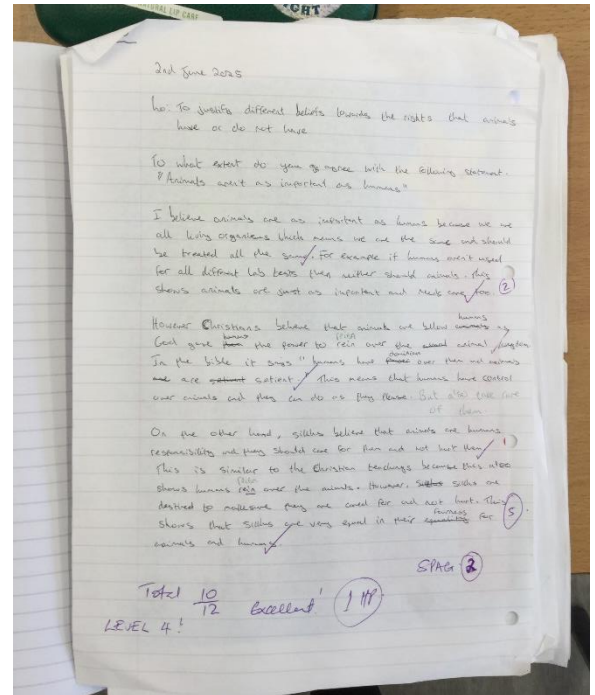 NATURAL LIP CARE
2nd June 2025
Lo: To justify different beliefs towards the rights that animals
have or do not have
To what extent do you agree with the following statement.
"Animals aren't as important as humans"
I believe animals are as important as humans because we are
all living organisms which means we are the same and should
be treated all the same. For example if humans aren't used
for all different lab tests then neither should animals. This
shows animals are just as important and needs care too. 2
However Christians believe that animals are bellow humans as
God gave humans the power to rein over the animal kingdom
In the bible it says "humans have dominion over them
are satient" This means that humans have control
over animals and they can do as they please. But also take care
of them
On the other hand, sikhs believe that animals are humans
responsibility and they should care for them and not hurt them 1
This is similar to the Christian teachings because this also
shows humans rein over the animals. However, sikhs are
destined to makesure they are cared for and not hurt. This
shows that sikhs are very equal in their fairness for 5
animals and humans.
SPAG 2
Total 10/12 Excellent! 1 HP
LEVEL 4!